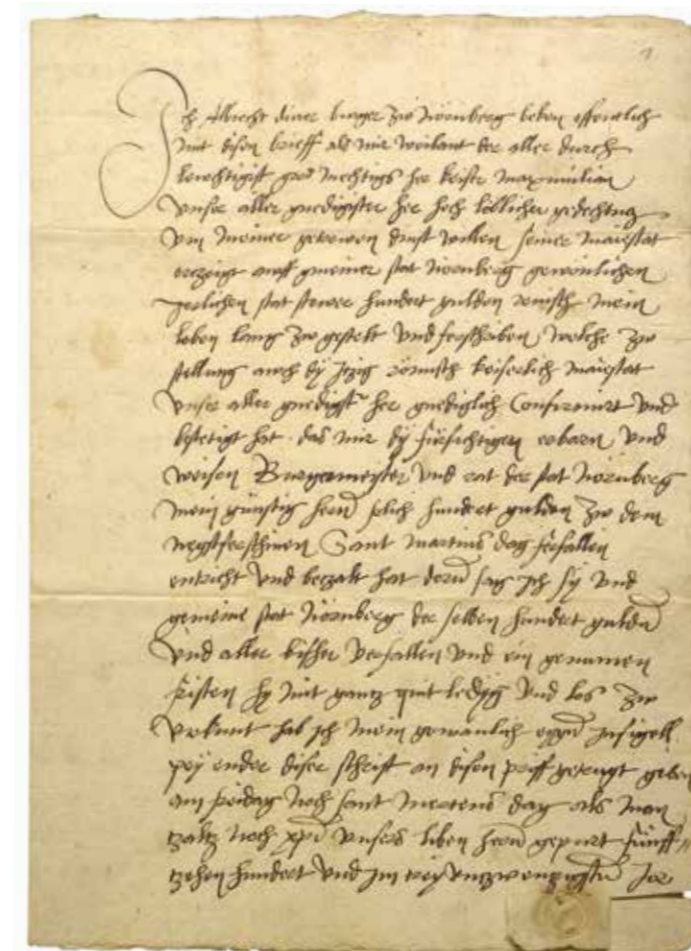 Ich Albrecht dürer burger zw Nörnberg beken offentlich
mit disen brieff als mir weilant der aller durch
lewchtigist gros mechtigs her keiser maximilian
vnser aller gnedigister her hoch löblicher gedechtnus
vm meiner getrewen dinst willen seiner maiestat
erczeigt awff gmeiner stat Nörnberg gewonlichen
jerlichen stat stewer hundert gulden reinisch mein
leben lang zw gestelt vnd ferschriben welche zw
stellung awch dy jczig römisch keiserlich maiestat
vnser aller gnedigst her gnediglich Confirmirt vnd
bestetigt hat das mir dy fürsichtigen erbarn vnd
weisen Burgermeister vnd rat der stat Nörnberg
mein günstig hern solich hundert gulden zw dem
negstferschinen Sant martins dag ferfallen
entricht vnd beczalt hat dorum sag jch sy vnd
gemeine stat Nörnberg der selben hundert guldn
vnd aller bisher verfallen vnd ein genumen
fristen hy mit gantz quit ledyg vnd los zw
vrkunt hab jch mein gewonlich eygen jnsigell
pey ender diser schrift an disen priff getrugt geben
am freidag noch sant mertens dag als man
tzaltz noch xpi vnsers liben hern gepurt fünff
tzehen hundert vnd jm trey vnzwenzigsten Jor